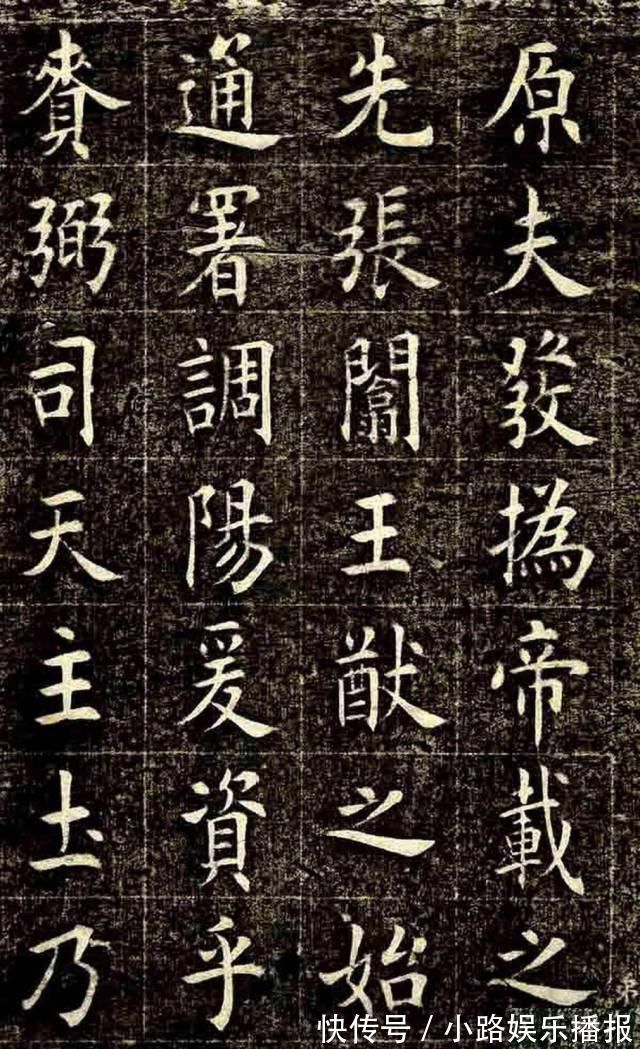 原夫發撝帝載之
先張闟王猷之始
通署調陽爰資乎
賚弼司天主土乃
快传号/小路娱乐播报